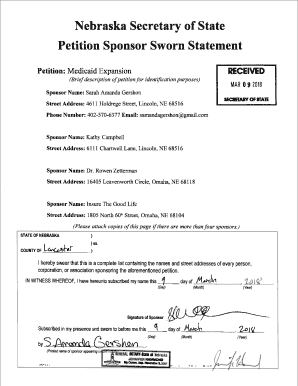 Nebraska Secretary of State
Petition Sponsor Sworn Statement
Petition: Medicaid Expansion
(Brief description of petition for identification purposes)
RECEIVED
MAR 09 2018
SECRETARY OF STATE
Sponsor Name: Sarah Amanda Gershon
Street Address: 4611 Holdrege Street, Lincoln, NE 68516
Phone Number: 402-570-6377 Email: samandagershon@gmail.com
Sponsor Name: Kathy Campbell
Street Address: 6111 Chartwell Lane, Lincoln, NE 68516
Sponsor Name: Dr. Rowen Zetterman
Street Address: 16405 Leavenworth Circle, Omaha, NE 68118
Sponsor Name: Insure The Good Life
Street Address: 1805 North 60th Street, Omaha, NE 68104
(Please attach copies of this page if there are more than four sponsors.)
STATE OF NEBRASKA )
) ss.
COUNTY OF Lancaster )
I hereby swear that this is a complete list containing the names and street addresses of every person,
corporation, or association sponsoring the aforementioned petition.
IN WITNESS WHEREOF, I have hereunto subscribed my name this 9 day of March 2018
(Day) (Month) (Year)
Signature of Sponsor
Subscribed in my presence and sworn to before me this 9 day of March, 2018
(Day) (Month) (Year)
by S. Amanda Gershon
(Printed name of sponsor appearing